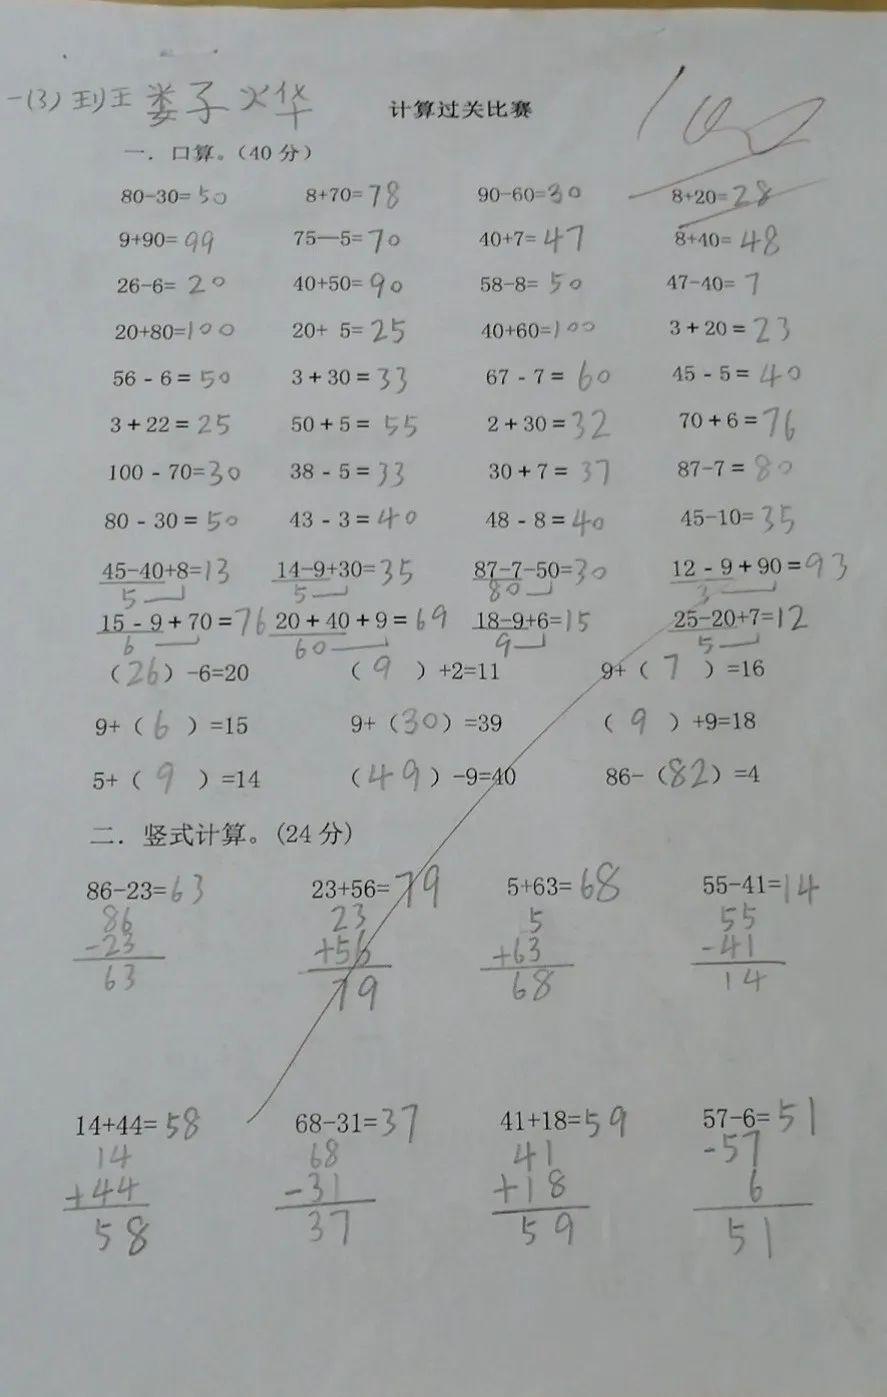 一(3)班 娄子烨 计算过关比赛 100
一．口算。（40分）
80-30=50 8+70=78 90-60=30 8+20=28
9+90=99 75—5=70 40+7=47 8+40=48
26-6=20 40+50=90 58-8=50 47-40=7
20+80=100 20+ 5=25 40+60=100 3+20=23
56-6=50 3+30=33 67-7=60 45-5=40
3+22=25 50+5=55 2+30=32 70+6=76
100-70=30 38-5=33 30+7=37 87-7=80
80-30=50 43-3=40 48-8=40 45-10=35
45-40+8=13 14-9+30=35 87-7-50=30 12-9+90=93
5 5 80 3
15-9+70=76 20+40+9=69 18-9+6=15 25-20+7=12
6 60 9 5
（26）-6=20 （9）+2=11 9+（7）=16
9+（6）=15 9+（30）=39 （9）+9=18
5+（9）=14 （49）-9=40 86-（82）=4
二．竖式计算。(24分)
86-23=63 23+56=79 5+63=68 55-41=14
86 23 5 55
-23 +56 +63 -41
63 79 68 14
14+44=58 68-31=37 41+18=59 57-6=51
14 68 41 -57
+44 -31 +18 6
58 37 59 51